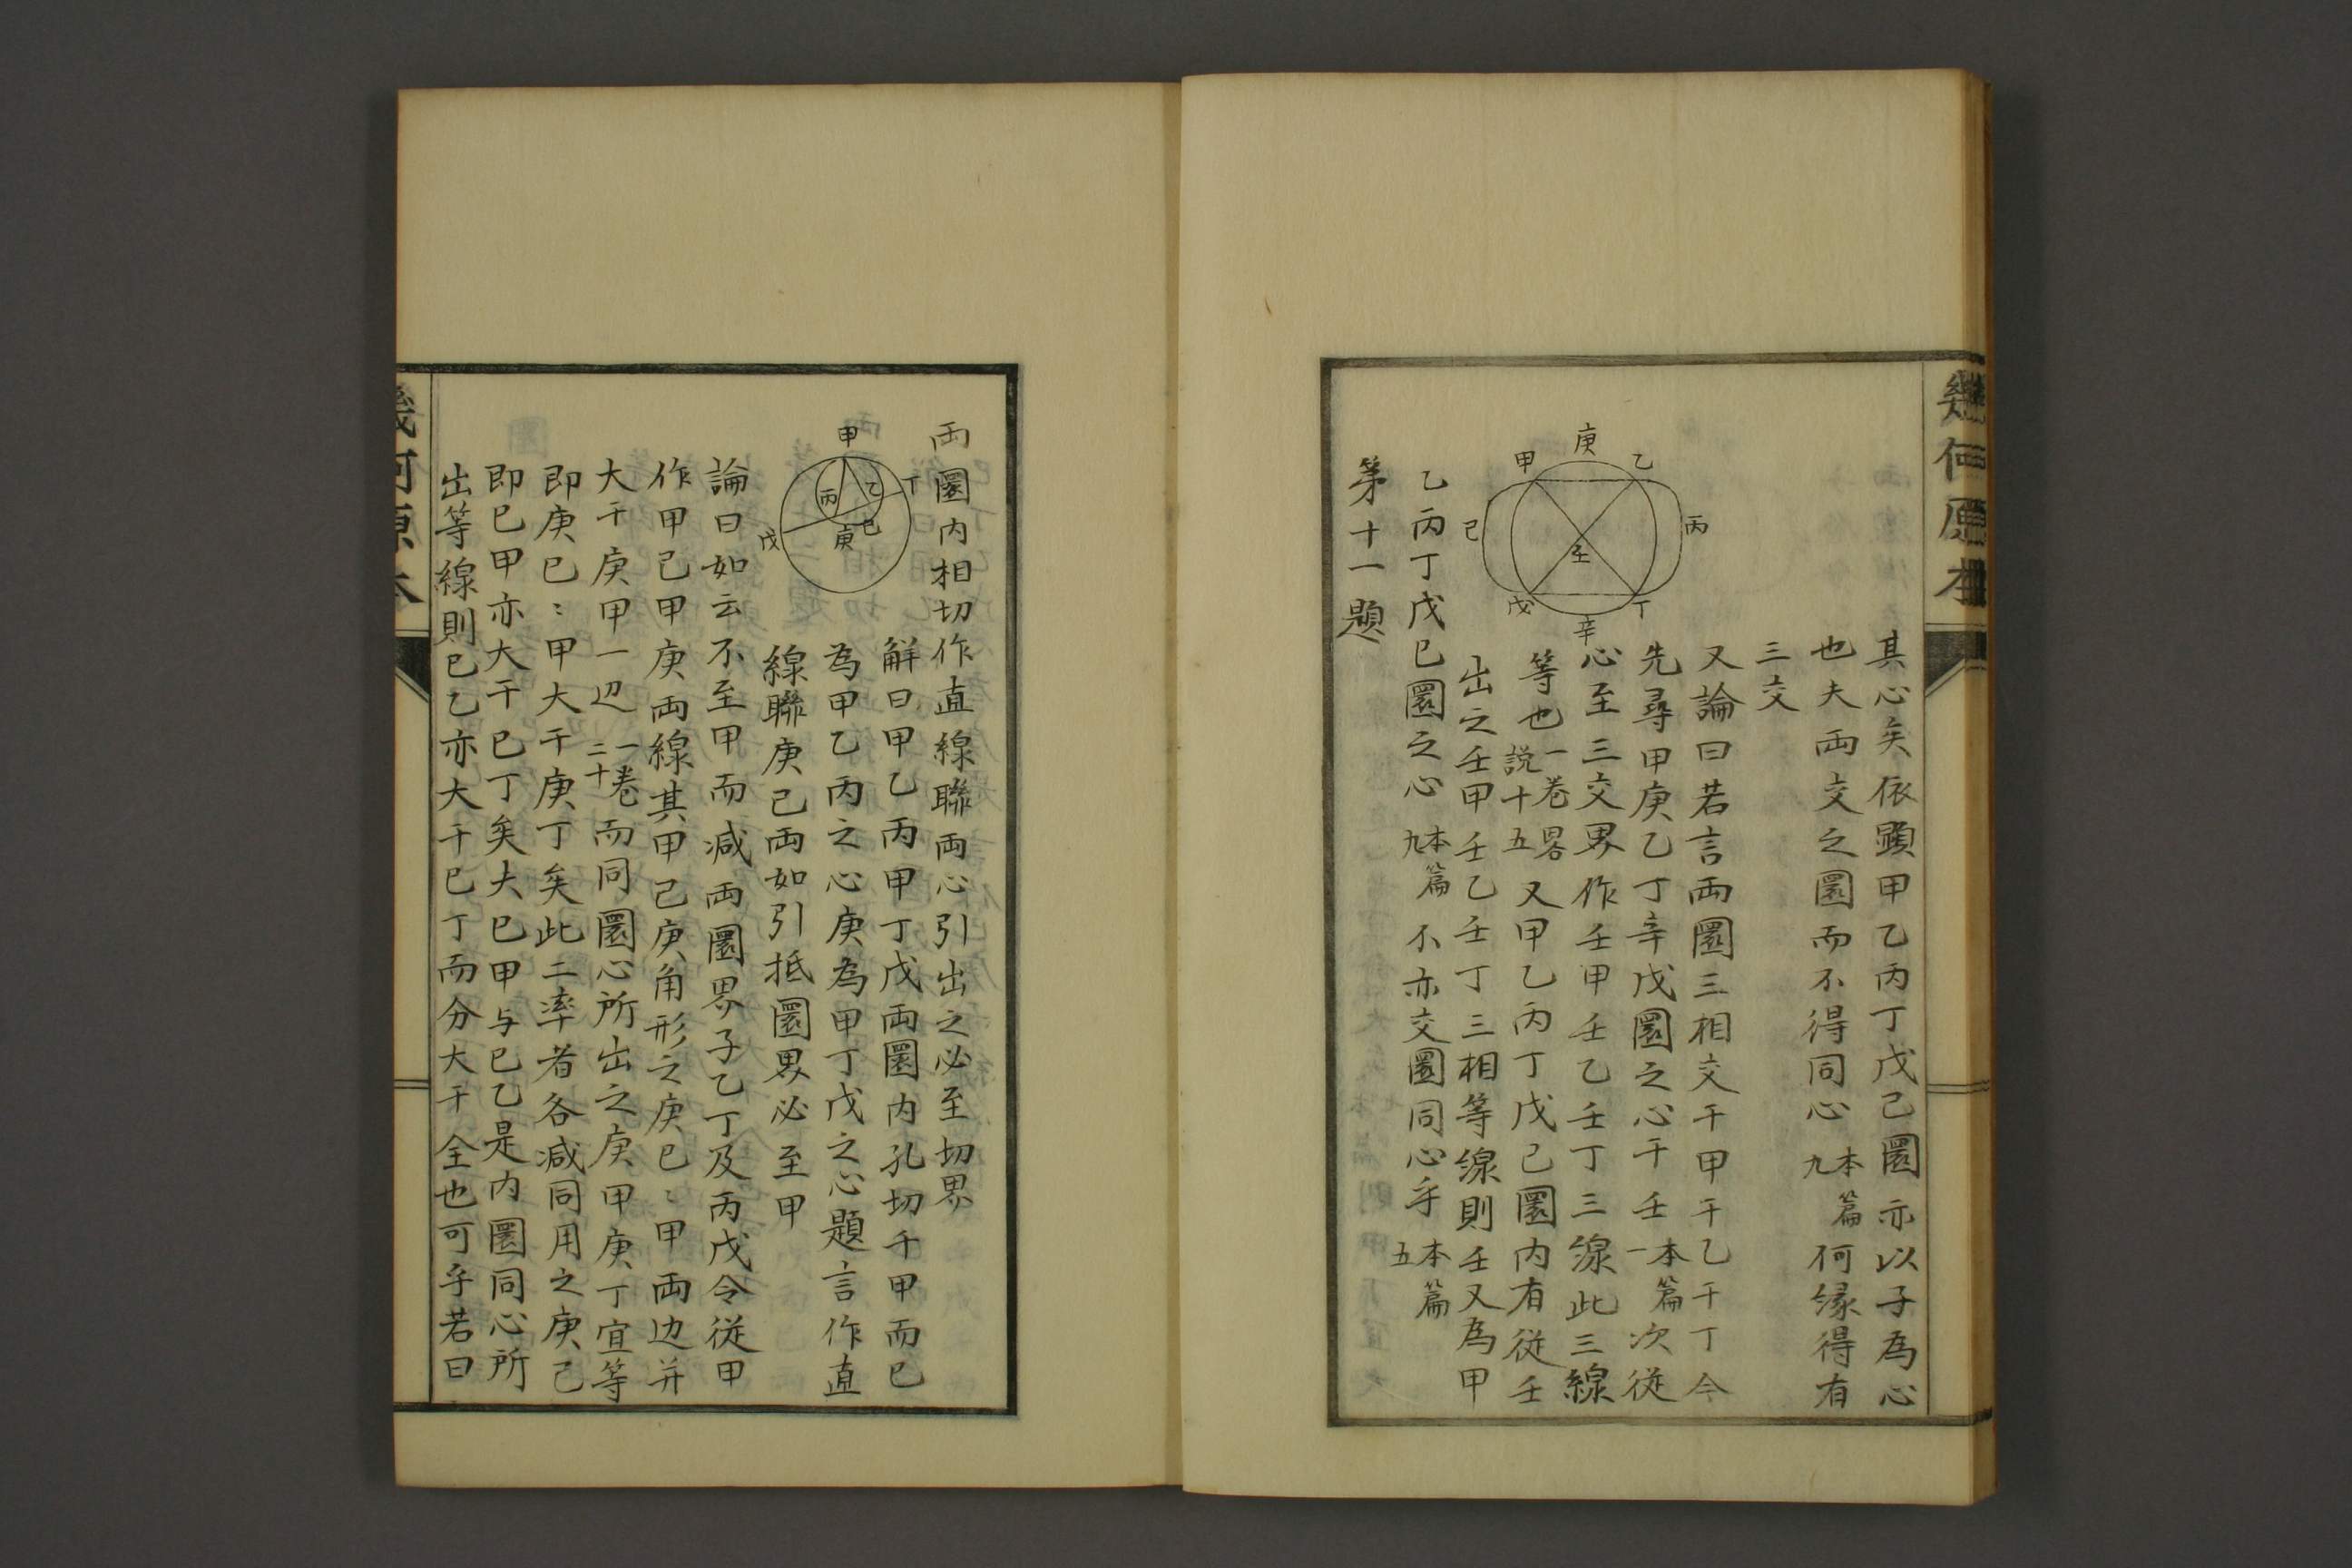 幾何原本
其心矣依顯甲乙丙丁戊己圜亦以子為心
也夫兩交之圜而不得同心本篇九何縁得有
三交
又論曰若言兩圜三相交于甲于乙于丁令
先尋甲庚乙丁辛戊圜之心于壬本篇一次従
心至三交界作壬甲壬乙壬丁三線此三線
等也一卷畧説十五又甲乙丙丁戊己圜内有従壬
出之壬甲壬乙壬丁三相等線則壬又為甲
乙丙丁戊己圜之心本篇九不亦交圜同心乎本篇五
庚
甲
乙
己
丙
壬
戊
丁
辛
第十一題
兩圜内相切作直線聯兩心引出之必至切界
解曰甲乙丙甲丁戊兩圜内切于甲而已
為甲乙丙之心庚為甲丁戊之心題言作直
線聯庚己兩如引抵圜界必至甲
甲
丁
丙
乙
己
庚
戊
論曰如云不至甲而减兩圜界子乙丁及丙戊令従甲
作甲己甲庚兩線其甲己庚角形之庚巳〻甲兩边并
大于庚甲一边一卷二十而同圜心所出之庚甲庚丁宜等
即庚巳〻甲大于庚丁矣此二率者各减同用之庚己
即巳甲亦大于巳丁矣夫巳甲与巳乙是内圜同心所
出等線則巳乙亦大于巳丁而分大于全也可乎若曰
幾何原本